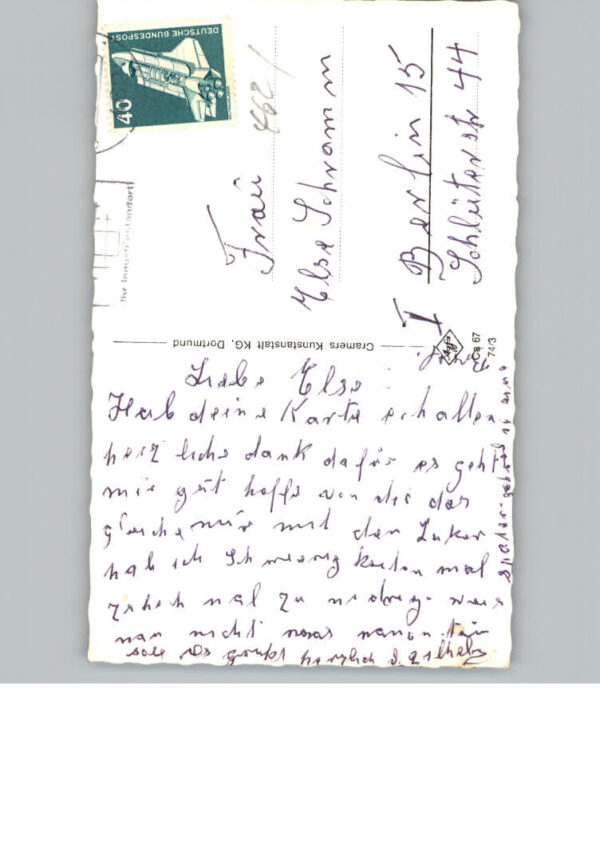 Liebe Else!
Hab deine Karte erhalten
herzlichs dank dafür es geht
mir gut hoffe von dir das
gleiche nur mit den Zuker
hab ich Schwierig keiten mal
zu hoch mal zu niedrig. weis
man nicht was man tun
soll es grüßt herzlich
später
Cramers Kunstanstalt KG, Dortmund
Cö 67
74/3
DEUTSCHE BUNDESPOST
40
Ihr Industriestandort
462/
Frau
Else Schramm
1 Berlin 15
Schlüterstr 44